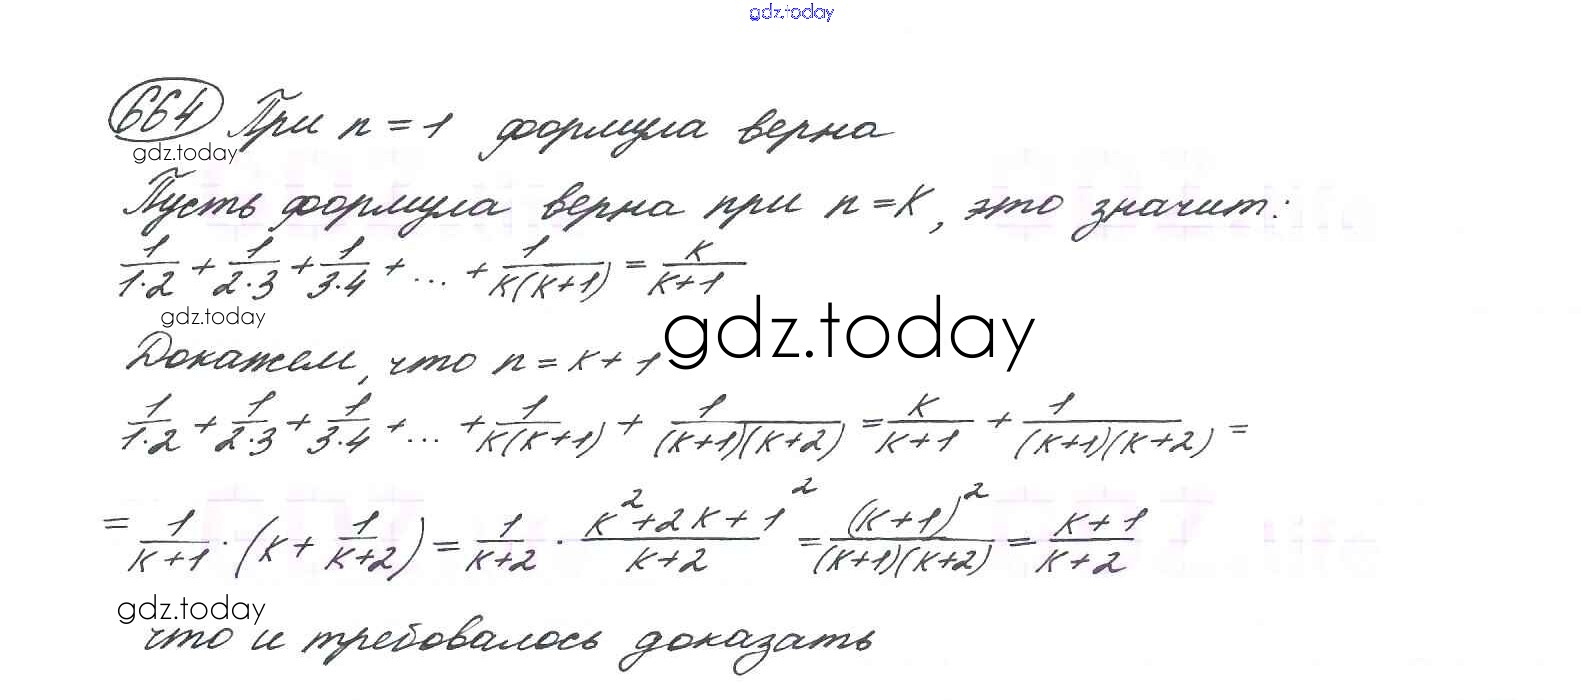 gdz.today
664 При n = 1 формула верна
gdz.today
Пусть формула верна при n = K, это значит:
1/(1·2) + 1/(2·3) + 1/(3·4) + ... + 1/(K(K+1)) = K/(K+1)
gdz.today
Докажем, что n = K + 1
gdz.today
1/(1·2) + 1/(2·3) + 1/(3·4) + ... + 1/(K(K+1)) + 1/((K+1)(K+2)) = K/(K+1) + 1/((K+1)(K+2)) =
= 1/(K+1) · (K + 1/(K+2)) = 1/(K+2) · (K²+2K+1²)/(K+2) = (K+1)²/((K+1)(K+2)) = (K+1)/(K+2)
gdz.today
что и требовалось доказать